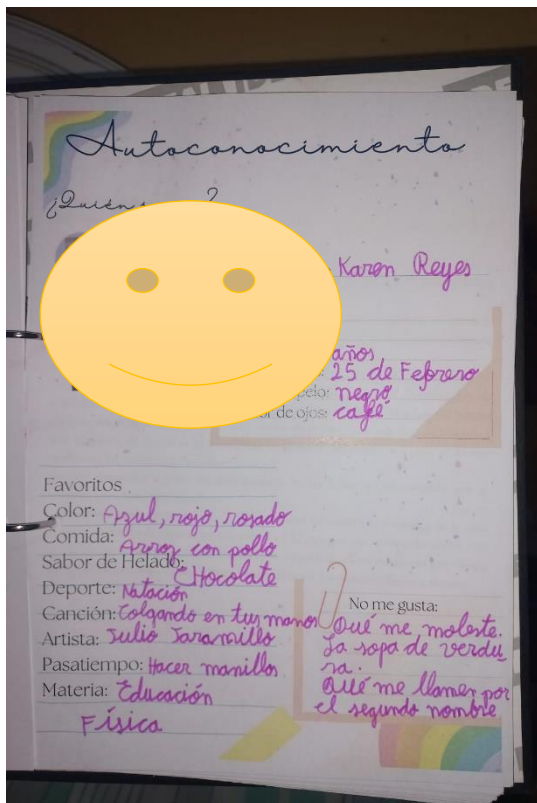 Autoconocimiento
¿Quién
?
Karen Reyes
años
25 de Febrero
pelo: negro
de ojos: café
Favoritos
Color: Azul, rojo, rosado
Comida: Arroz con pollo
Sabor de Helado: CHocolate
Deporte: Natación
Canción: Colgando en tus manos
Artista: Julio Jaramillo
Pasatiempo: Hacer manillas
Materia: Educación
Física
No me gusta:
Qué me moleste.
La sopa de verdu
ra.
Qué me llamen por
el segundo nombre